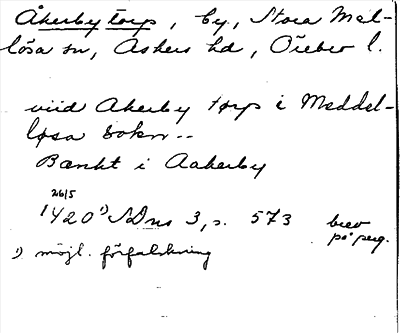 Åkerby torp, by, Stora Mel-
lösa sn, Askers hd, Örebro l.
viid Akerby torp i Meddel-
løsa sokn--
Bænkt i Aakerby
26/5
1420 1) SDns 3, s. 573 brev
på perg.
1) möjl. förfalskning